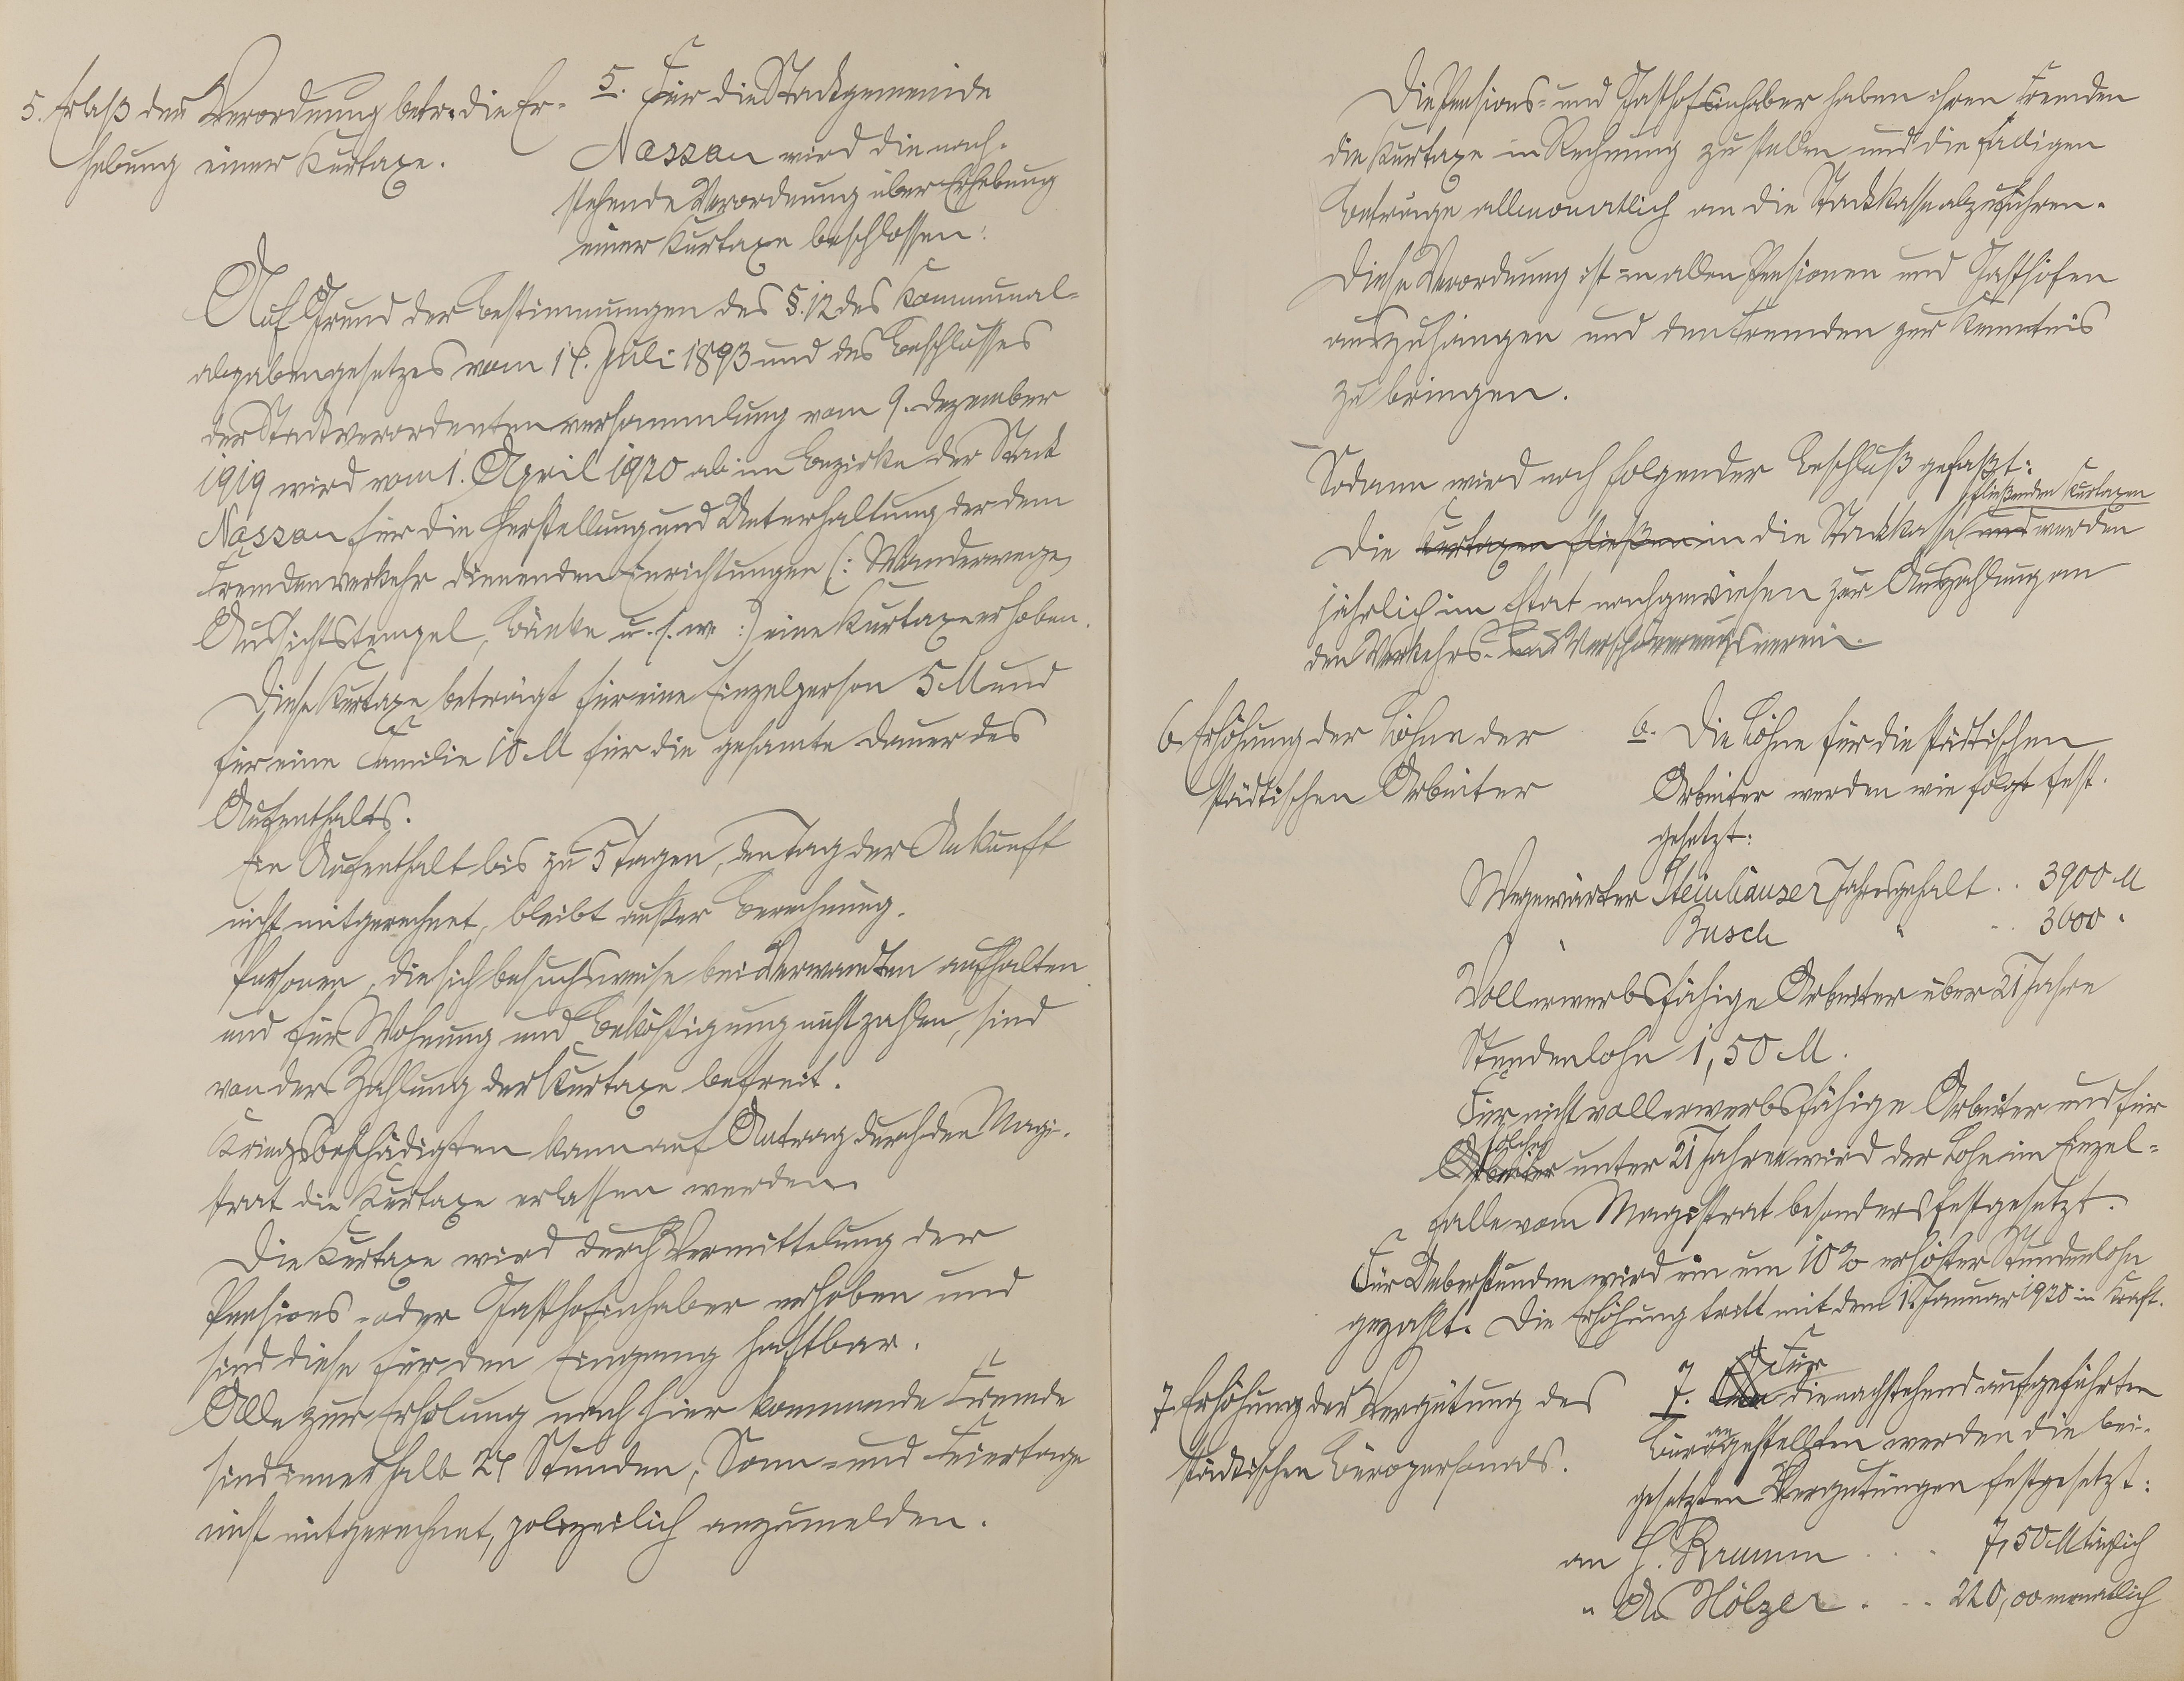 5. Erlaß der Verordnung betr. die Er-
hebung einer Kurtaxe.
5. Für die Stadtgemeinde
Nassau wird die nach-
stehende Verordnung über Erhebung
einer Kurtaxe beschlossen:
Auf Grund der Bestimmungen des §. 12 des Kommunal-
abgabengesetzes vom 14. Juli 1893 und des Beschlusses
der Stadtverordnetenversammlung vom 9. Dezember
1919 wird vom 1. April 1920 ab im Bezirke der Stadt
Nassau für die Herstellung und Unterhaltung der dem
Fremdenverkehr dienenden Einrichtungen (: Wanderwege,
Aussichtstempel, Bänke u. s. w. :) eine Kurtaxe erhoben.
Diese Kurtaxe beträgt für eine Einzelperson 5 M und
für eine Familie 10 M für die gesamte Dauer des
Aufenthalts.
Ein Aufenthalt bis zu 5 Tagen, den Tag der Ankunft
nicht mitgerechnet, bleibt außer Berechnung.
Personen, die sich besuchsweise bei Verwandten aufhalten
und für Wohnung und Beköstigung nicht zahlen, sind
von der Zahlung der Kurtaxe befreit.
Kriegsbeschädigten kann auf Antrag durch den Magi-
strat die Kurtaxe erlassen werden.
Die Kurtaxe wird durch Vermittelung der
Pensions- oder Gasthofinhaber erhoben und
sind diese für den Eingang haftbar.
Alle zur Erholung nach hier kommende Fremde
sind innerhalb 24 Stunden, Sonn- und Feiertage
nicht mitgerechnet, polizeilich anzumelden.
Die Pensions- und Gasthofinhaber haben ihren Fremden
die Kurtaxe in Rechnung zu stellen und die fälligen
Beträge allmonatlich an die Stadtkasse abzuführen.
Diese Verordnung ist in allen Pensionen und Gasthöfen
auszuhängen und den Fremden zur Kenntnis
zu bringen.
Sodann wird noch folgender Beschluß gefaßt:
fließenden Kurtaxen
Die Kurtaxen fließen in die Stadtkasse und werden
jährlich im Etat nachgewiesen zur Auszahlung an
den Verkehrs- und Verschönerungsverein.
6. Erhöhung der Löhne der
städtischen Arbeiter
6. Die Löhne für die städtischen
Arbeiter werden wie folgt fest-
gesetzt:
Wegewärter Steinhäuser Jahresgehalt .. 3900 M
" Busch " .. 3600 "
Vollerwerbsfähige Arbeiter über 21 Jahre
Stundenlohn 1,50 M.
Für nicht vollerwerbsfähige Arbeiter und für
solche
Arbeiter unter 21 Jahren wird der Lohn im Einzel-
falle vom Magistrat besonders festgesetzt.
Für Ueberstunden wird ein um 10% erhöhter Stundenlohn
gezahlt. Die Erhöhung tritt mit dem 1. Januar 1920 in Kraft.
7. Erhöhung der Vergütung des
städtischen Büropersonals.
Für
7. die nachstehend aufgeführten
Büroangestellten werden die bei-
gesetzten Vergütungen festgesetzt:
an H. Kramm . . . 7,50 M täglich
" A. Hölzer . . . 220,00 monatlich